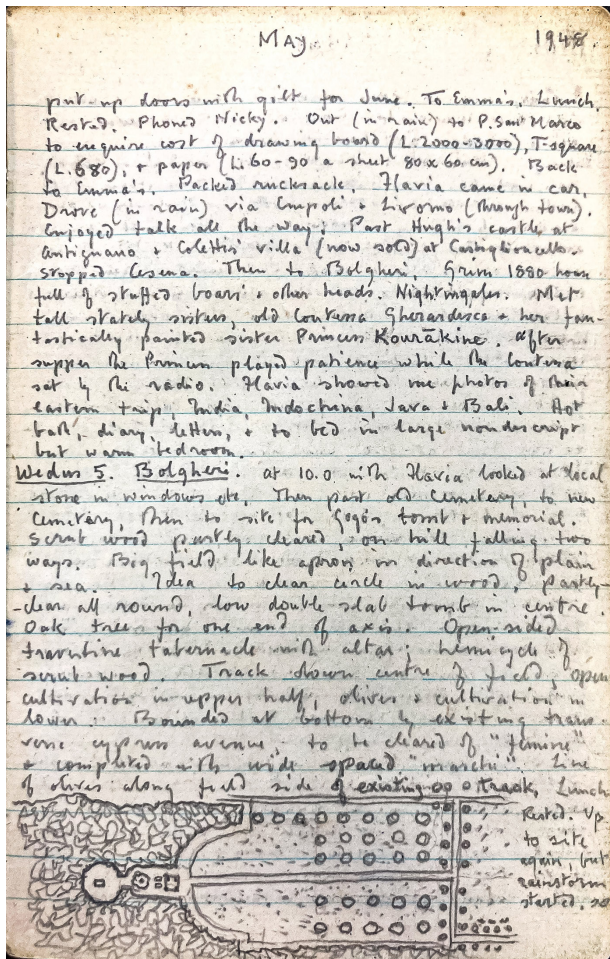 May 1948
put up doors with gilt for June. To Emma's. Lunch.
Rested. Phoned Nicky. Out (in rain) to P. San Marco
to enquire cost of drawing board (L. 2000-3000), T-square
(L. 680), & paper (L. 60-90 a sheet 80 x 60 cm). Back
to Emma's. Packed rucksack. Flavia came in car.
Drove (in rain) via Empoli & Livorno (through town).
Enjoyed talk all the way. Past Hugh's castle at
Antignano & Coletti's villa (now sold) at Castiglioncello.
Stopped Cesena. Then to Bolgheri. Grim 1880 house
full of stuffed boars' & other heads. Nightingales. Met
tall stately sisters, old Contessa Gherardesca & her fan-
tastically painted sister Princess Kourākine. After
supper the Princess played patience while the Contessa
sat by the radio. Flavia showed me photos of their
eastern trip, India, Indochina, Java & Bali. Hot
bath, diary, letters, & to bed in large nondescript
but warm bedroom.
Wednes 5. Bolgheri. At 10.0 with Flavia looked at local
stone in windows etc. Then past old cemetery, to new
cemetery, then to site for Gogo's tomb & memorial.
Scrub wood partly cleared, on hill falling two
ways. Big field like apron in direction of plain
& sea. Idea to clear circle in wood, partly-
-clear all round, low double slab tomb in centre.
Oak trees for one end of axis. Open-sided
travertine tabernacle with altar; hemicycle of
scrub wood. Track down centre of field, open
cultivation in upper half, olives & cultivation in
lower. Bounded at bottom by existing trans-
verse cypress avenue, to be cleared of "femine"
& completed with wide spaced "maschi". Line
of olives along field side of existing track. Lunch.
Rested. Up
to site
again, but
rainstorm
started, so